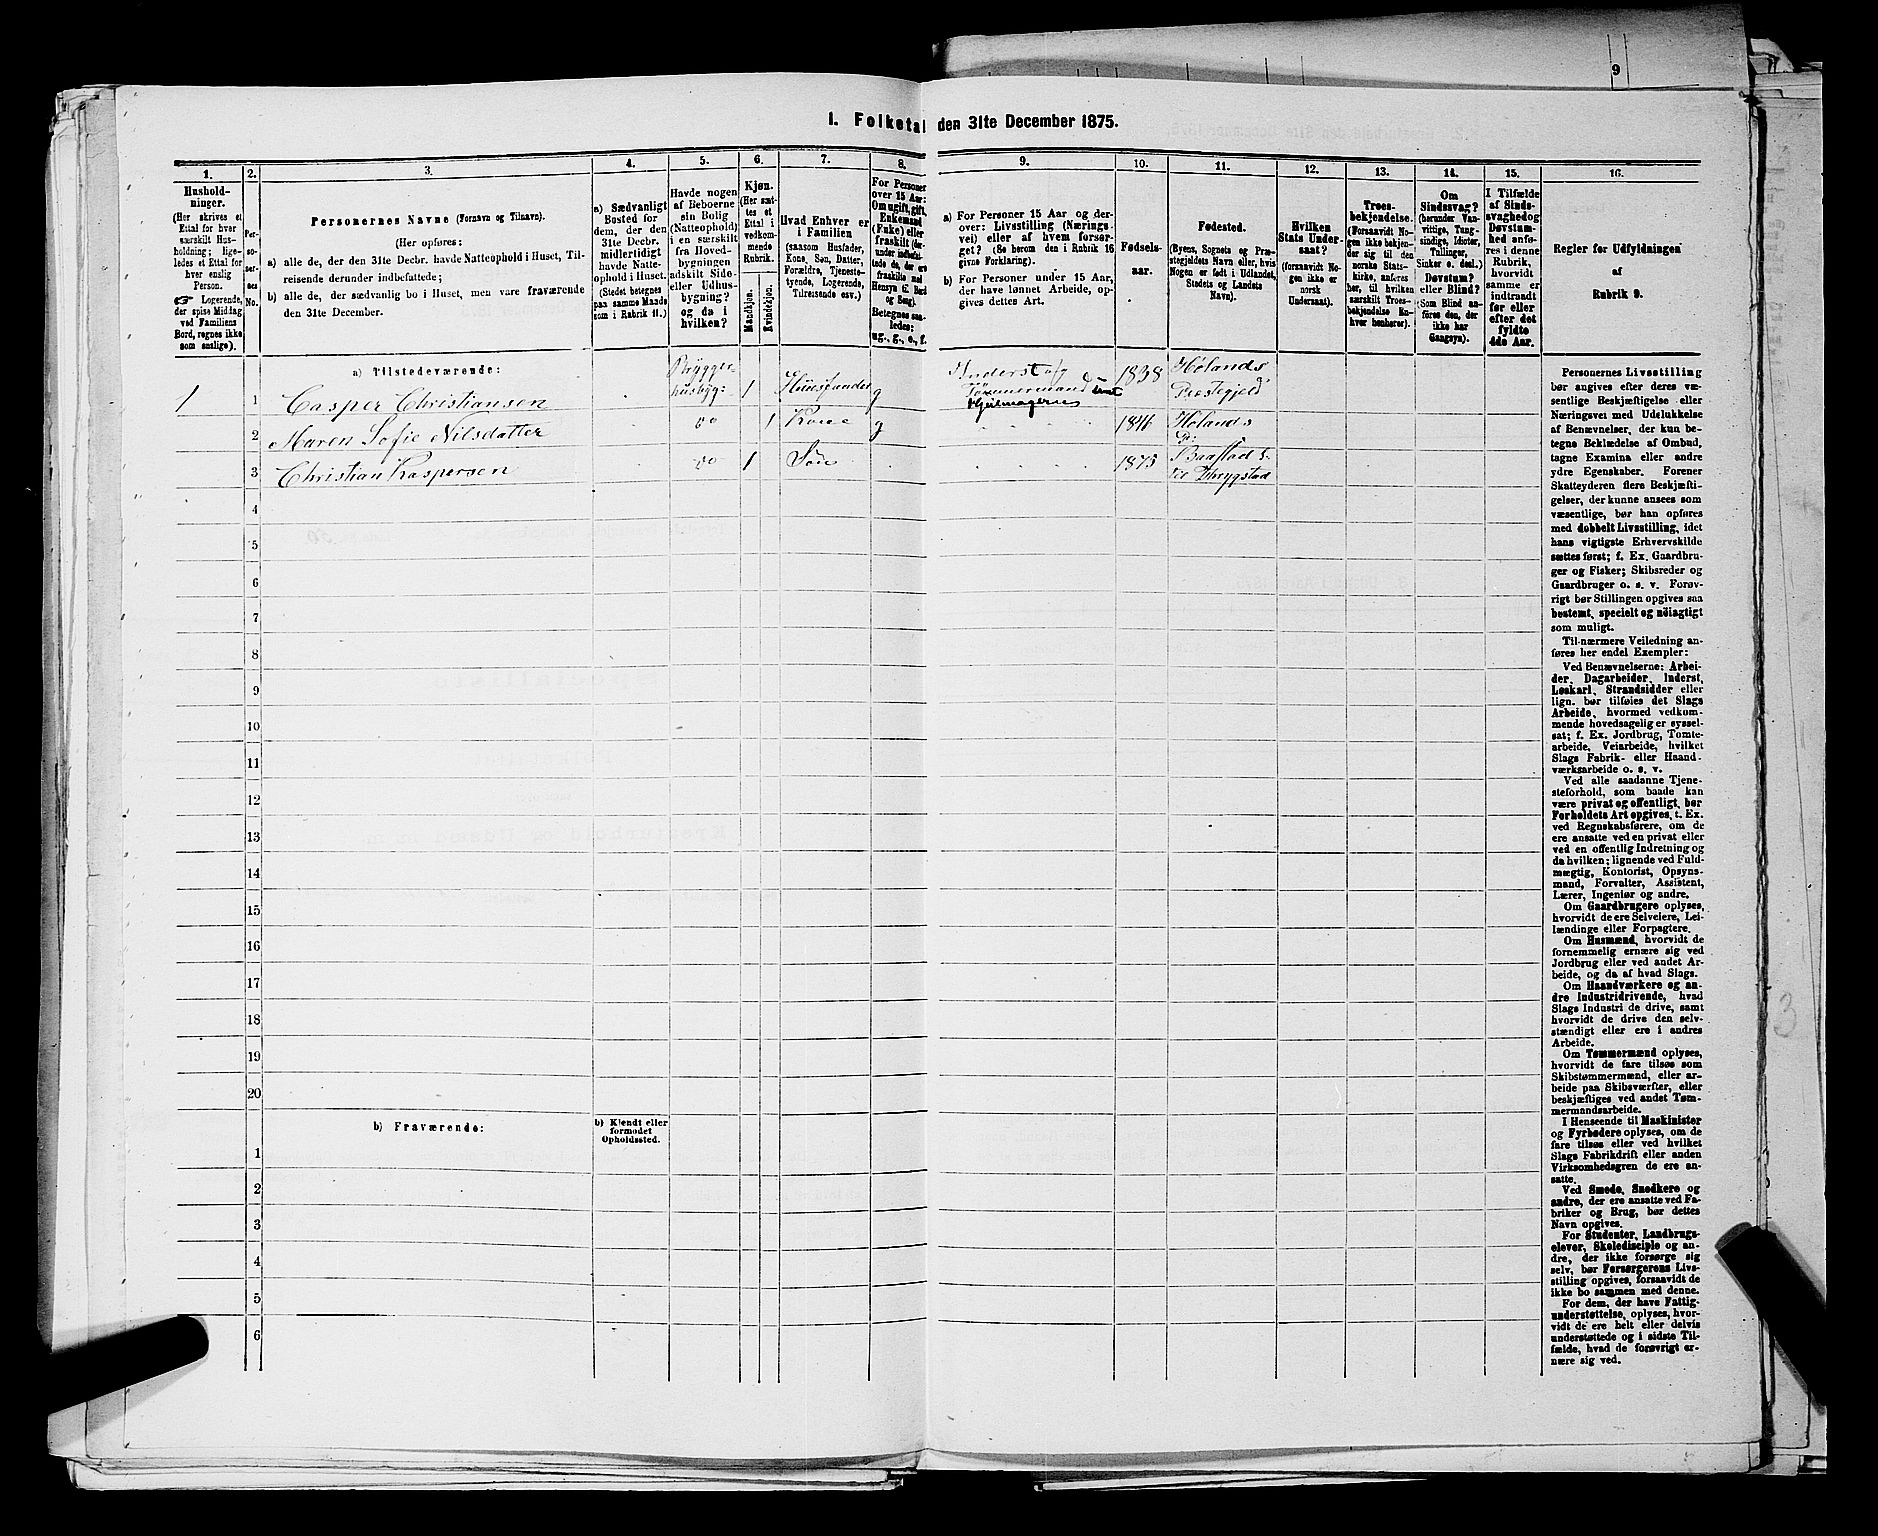 9
1. Folketal den 31te December 1875.
1.
2.
3.
4.
5.
6.
7.
8.
9.
10.
11.
12.
13.
14.
15.
16.
Hushold-
ninger.
(Her skrives et
Ettal for hver
særskilt Hus-
holdning; lige-
ledes et Ettal for
hver enslig
Person.
Logerende,
der spise Middag
ved Familiens
Bord, regnes ikke
som enslige).
Per-
so-
ner-
nes
No.
Personernes Navne (Fornavn og Tilnavn).
(Her opføres:
a) alle de, der den 31te Decbr. havde Natteophold i Huset, Til-
reisende derunder indbefattede;
b) alle de, der sædvanlig bo i Huset, men vare fraværende
den 31te December.
a) Sædvanligt
Bosted for
dem, der den
31te Decbr.
midlertidigt
havde Natte-
ophold i Huset.
(Stedet betegnes
paa samme Maade
som i Rubrik 11.)
Havde nogen
af Beboerne
sin Bolig
(Natteophold)
i en særskilt
fra Hoved-
bygningen
adskilt Side-
eller Udhus-
bygning?
og da i
hvilken?
Kjøn.
(Her sæt-
tes et
Ettal i
vedkom-
mende
Rubrik.
Mandkjøn.
Kvindekjøn.
Hvad Enhver er
i Familien
(saasom Husfader,
Kone, Søn, Datter,
Forældre, Tjeneste-
tyende, Logerende,
Tilreisende osv.)
For Personer
over 15 Aar:
Om ugift, gift,
Enkemand
(Enke) eller
fraskilt (der-
under indbefat-
tede de, der ere
fraskilte med
Hensyn til Bord
og Seng).
Betegnes saa-
ledes:
ug., g., e., f.
a) For Personer 15 Aar og der-
over: Livsstilling (Nærings-
vei) eller af hvem forsør-
get? (Se herom den i Rubrik 16
givne Forklaring).
b) For Personer under 15 Aar,
der have lønnet Arbeide, op-
gives dettes Art.
Fødsels-
aar.
Fødested.
(Byens, Sognets og Præ-
stegjeldets Navn eller, hvis
Nogen er født i Udlandet,
Stedets og Landets
Navn).
Hvilken
Stats Under-
saat?
(forsaavidt No-
gen ikke er
norsk
Undersaat).
Troes-
bekjendelse.
(Forsaavidt No-
gen ikke bekjen-
der sig til den
norske Stats-
kirke, anføres
her, til hvilken
særskilt Troes-
bekjendelse En-
hver henhører).
Om
Sindssvag?
(herunder Van-
vittige, Tung-
sindige, Idioter,
Tullinger,
Sinker o. desl.)
Døvstum?
eller Blind?
(Som Blind an-
føres den, der
ikke har
Gangsyn).
I Tilfælde
af Sinds-
svaghed og
Døvstum-
hed anfø-
res i denne
Rubrik,
hvorvidt
samme er
indtraadt
før eller
efter det
fyldte
4de Aar.
Regler for Udfyldningen
af
Rubrik 9.
a) Tilstedeværende:
1 1 Casper Christiansen Brygger- husbyg: 1 Huusfader g Inderst af Tømmermand samt Hjulmagerne 1838 Hølands Præstegjeld
2 Maren Sofie Nilsdatter do 1 Kone g 1846 Hølands Pr:
3 Christian Kaspersen do 1 Søn 1875 Baastad S.
4
5
6
7
8
9
10
11
12
13
14
15
16
17
18
19
20
b) Fraværende:
b) Kjendt eller
formodet
Opholdssted.
1
2
3
4
5
6
Personernes Livsstilling
bør angives efter deres væ-
sentlige Beskjæftigelse eller
Næringsvei med Udelukkelse
af Benævnelser, der kun be-
tegne Beklædelse af Ombud,
tagne Examina eller andre
ydre Egenskaber. Forener
Skatteyderen flere Beskjæfti-
gelser, der kunne ansees som
væsentlige, bør han opføres
med dobbelt Livsstilling, idet
hans vigtigste Erhvervskilde
sættes først; f. Ex. Gaardbru-
ger og Fisker; Skibsreder og
Gaardbruger o. s. v. Forøv-
rigt bør Stillingen opgives saa
bestemt, specielt og nöiagtigt
som muligt.
Til nærmere Veiledning an-
føres her endel Exempler:
Ved Benævnelserne: Arbei-
der, Dagarbeider, Inderst,
Løskarl, Strandsidder eller
lign. bør tilføies det Slags
Arbeide, hvormed vedkom-
mende hovedsagelig er syssel-
sat; f. Ex. Jordbrug, Tomte-
arbeide, Veiarbeide, hvilket
Slags Fabrik- eller Haand-
værksarbeide o. s. v.
Ved alle saadanne Tjene-
steforhold, som baade kan
være privat og offentligt, bør
Forholdets Art opgives, f. Ex.
ved Regnskabsførere, om de
ere ansatte ved en privat eller
ved en offentlig Indretning og
da hvilken; lignende ved Fuld-
mægtig, Kontorist, Opsyns-
mand, Forvalter, Assistent,
Lærer, Ingeniør og andre.
Om Gaardbrugere oplyses,
hvorvidt de ere Selveiere, Lei-
lændinge eller Forpagtere.
Om Husmænd, hvorvidt de
fornemmelig ernære sig ved
Jordbrug eller ved andet Ar-
beide, og da af hvad Slags.
Om Haandværkere og an-
dre Industridrivende, hvad
Slags Industri de drive, samt
hvorvidt de drive den selv-
stændigt eller ere i andres
Arbeide.
Om Tømmermænd oplyses,
hvorvidt de fare tilsøs som
Skibstømmermænd, eller ar-
beide paa Skibsværfter, eller
beskjæftiges ved andet Tøm-
mermandsarbeide.
I Henseende til Maskinister
og Fyrbødere oplyses, om de
fare tilsøs eller ved hvilket
Slags Fabrikdrift eller anden
Virksomhedsgren de ere an-
satte.
Ved Smede, Snedkere og
andre, der ere ansatte ved Fa-
briker og Brug, bør dettes
Navn opgives.
For Studenter, Landbrugs-
elever, Skoledisciple og an-
dre, der ikke forsørge sig
selv, bør Forsørgerens Livs-
stilling opgives, forsaavidt de
ikke bo sammen med denne.
For dem, der have Fattig-
understøttelse, oplyses, hvor-
vidt de ere helt eller delvis
understøttede og i sidste Til-
fælde, hvad de forøvrigt er-
nære sig ved.
3